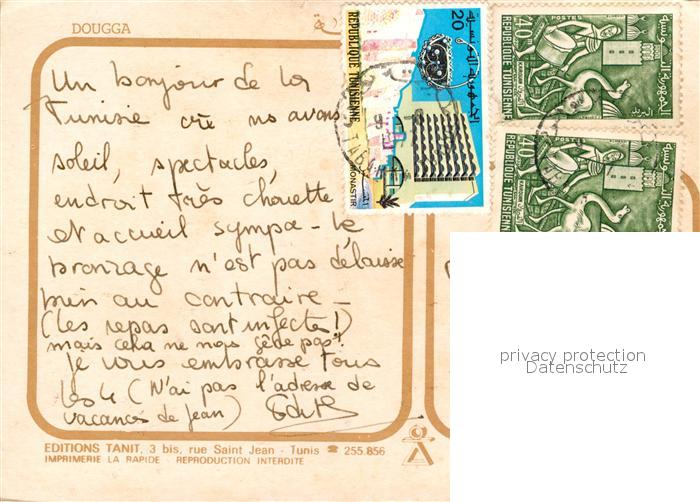 DOUGGA
Un bonjour de la
Tunisie où ns avons
soleil, spectacles,
endroit très chouette
et accueil sympa - le
bronzage n'est pas délaissé
bien au contraire -
(les repas sont infectes!)
mais cela ne nous gêne pas!
Je vous embrasse tous
les 4 (N'ai pas l'adresse de
vacances de Jean) Edith
EDITIONS TANIT, 3 bis, rue Saint Jean - Tunis ☎ 255.856
IMPRIMERIE LA RAPIDE - REPRODUCTION INTERDITE
REPUBLIQUE TUNISIENNE
20
الجمهورية التونسية
MONASTIR
40m
POSTES
REPUBLIQUE TUNISIENNE
الجمهورية التونسية
البريد
40m
POSTES
REPUBLIQUE TUNISIENNE
الجمهورية التونسية
privacy protection
Datenschutz